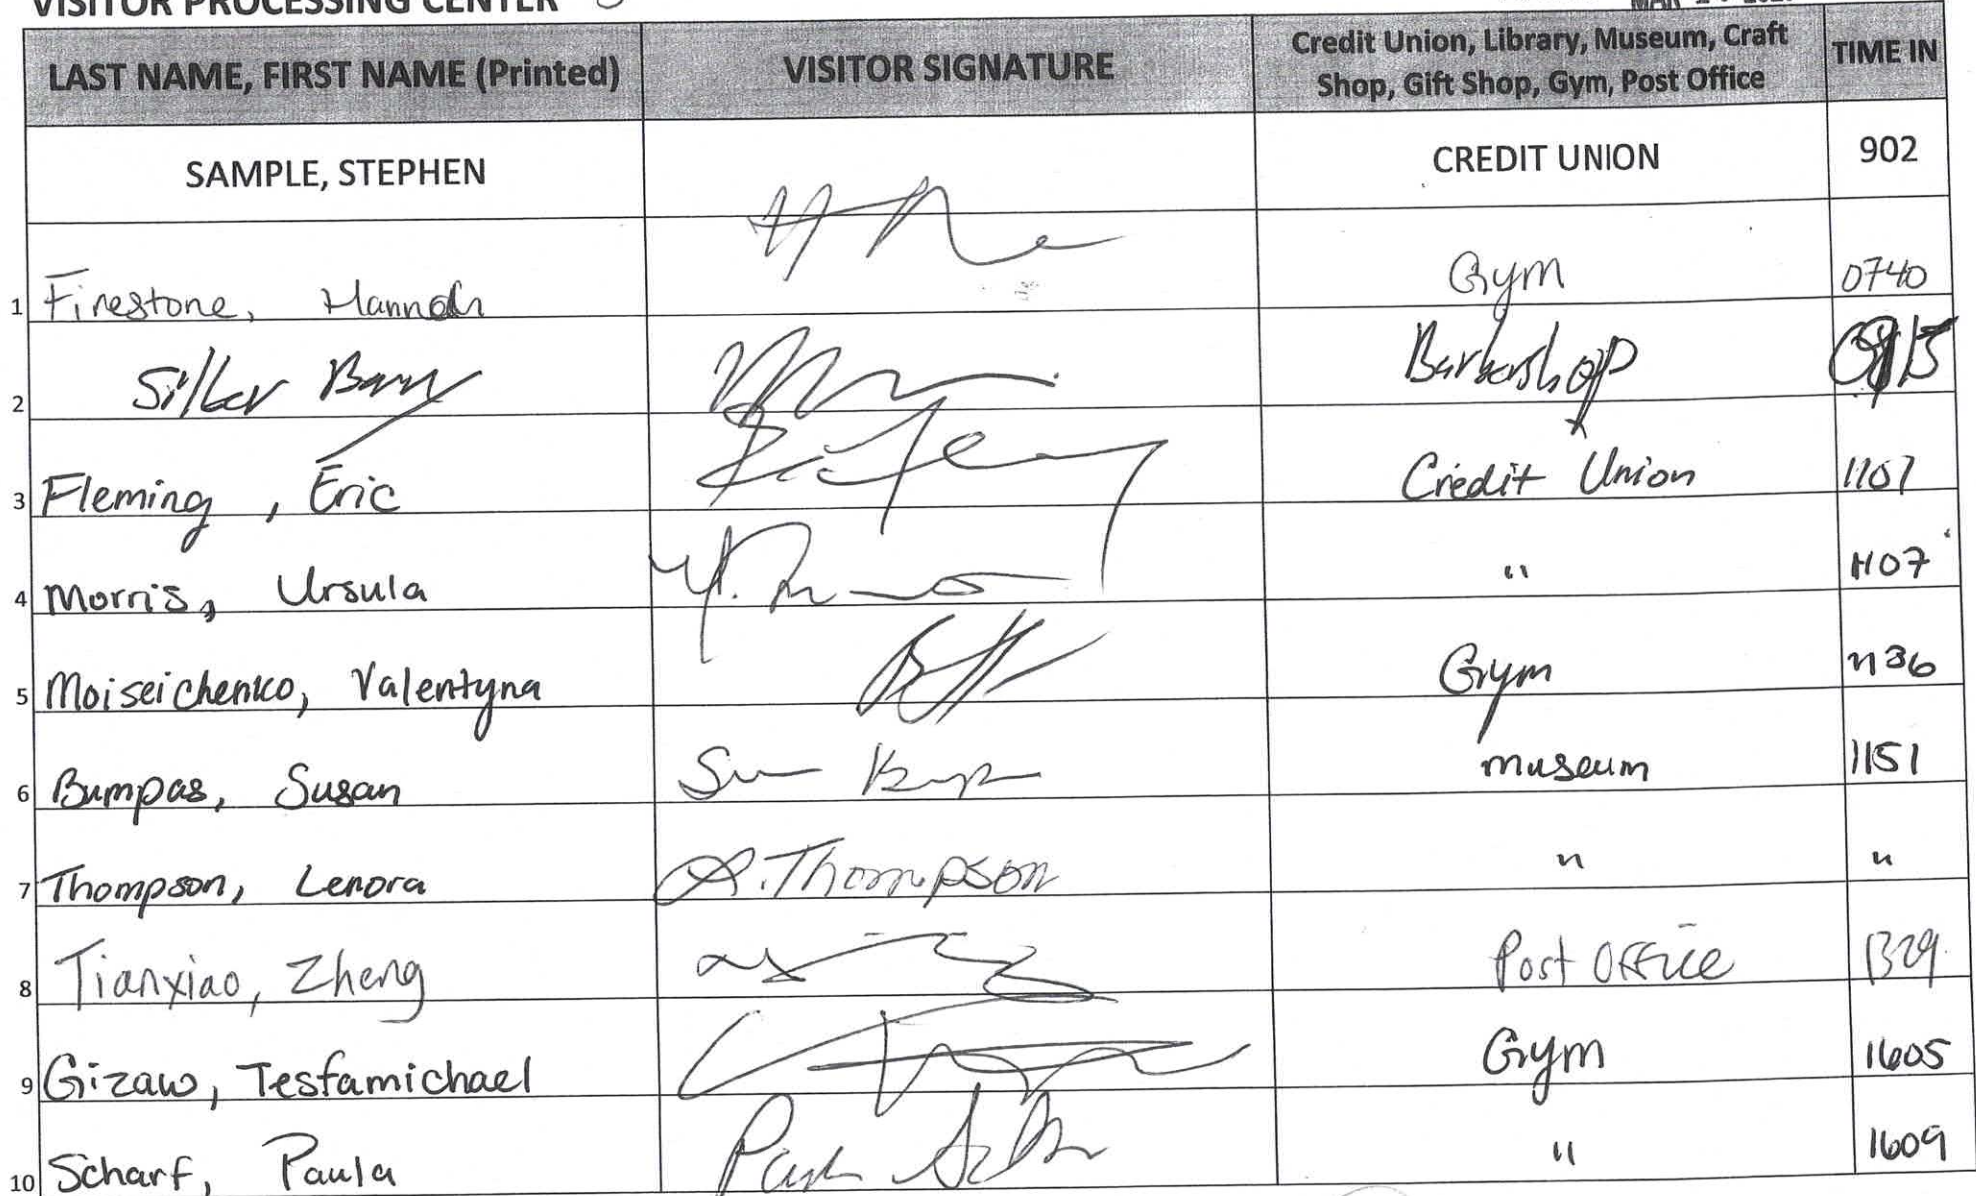 VISITOR PROCESSING CENTER
LAST NAME, FIRST NAME (Printed) VISITOR SIGNATURE Credit Union, Library, Museum, Craft Shop, Gift Shop, Gym, Post Office TIME IN
SAMPLE, STEPHEN CREDIT UNION 902
1 Firestone, Hannah Gym 0740
2 Silber Barry Barbershop
3 Fleming, Eric Credit Union 1107
4 Morris, Ursula " 1107
5 Moiseichenko, Valentyna Gym 1136
6 Bumpas, Susan museum 1151
7 Thompson, Lenora Thompson " "
8 Tianxiao, Zheng Post Office 1329
9 Gizaw, Tesfamichael Gym 1605
10 Scharf, Paula " 1609